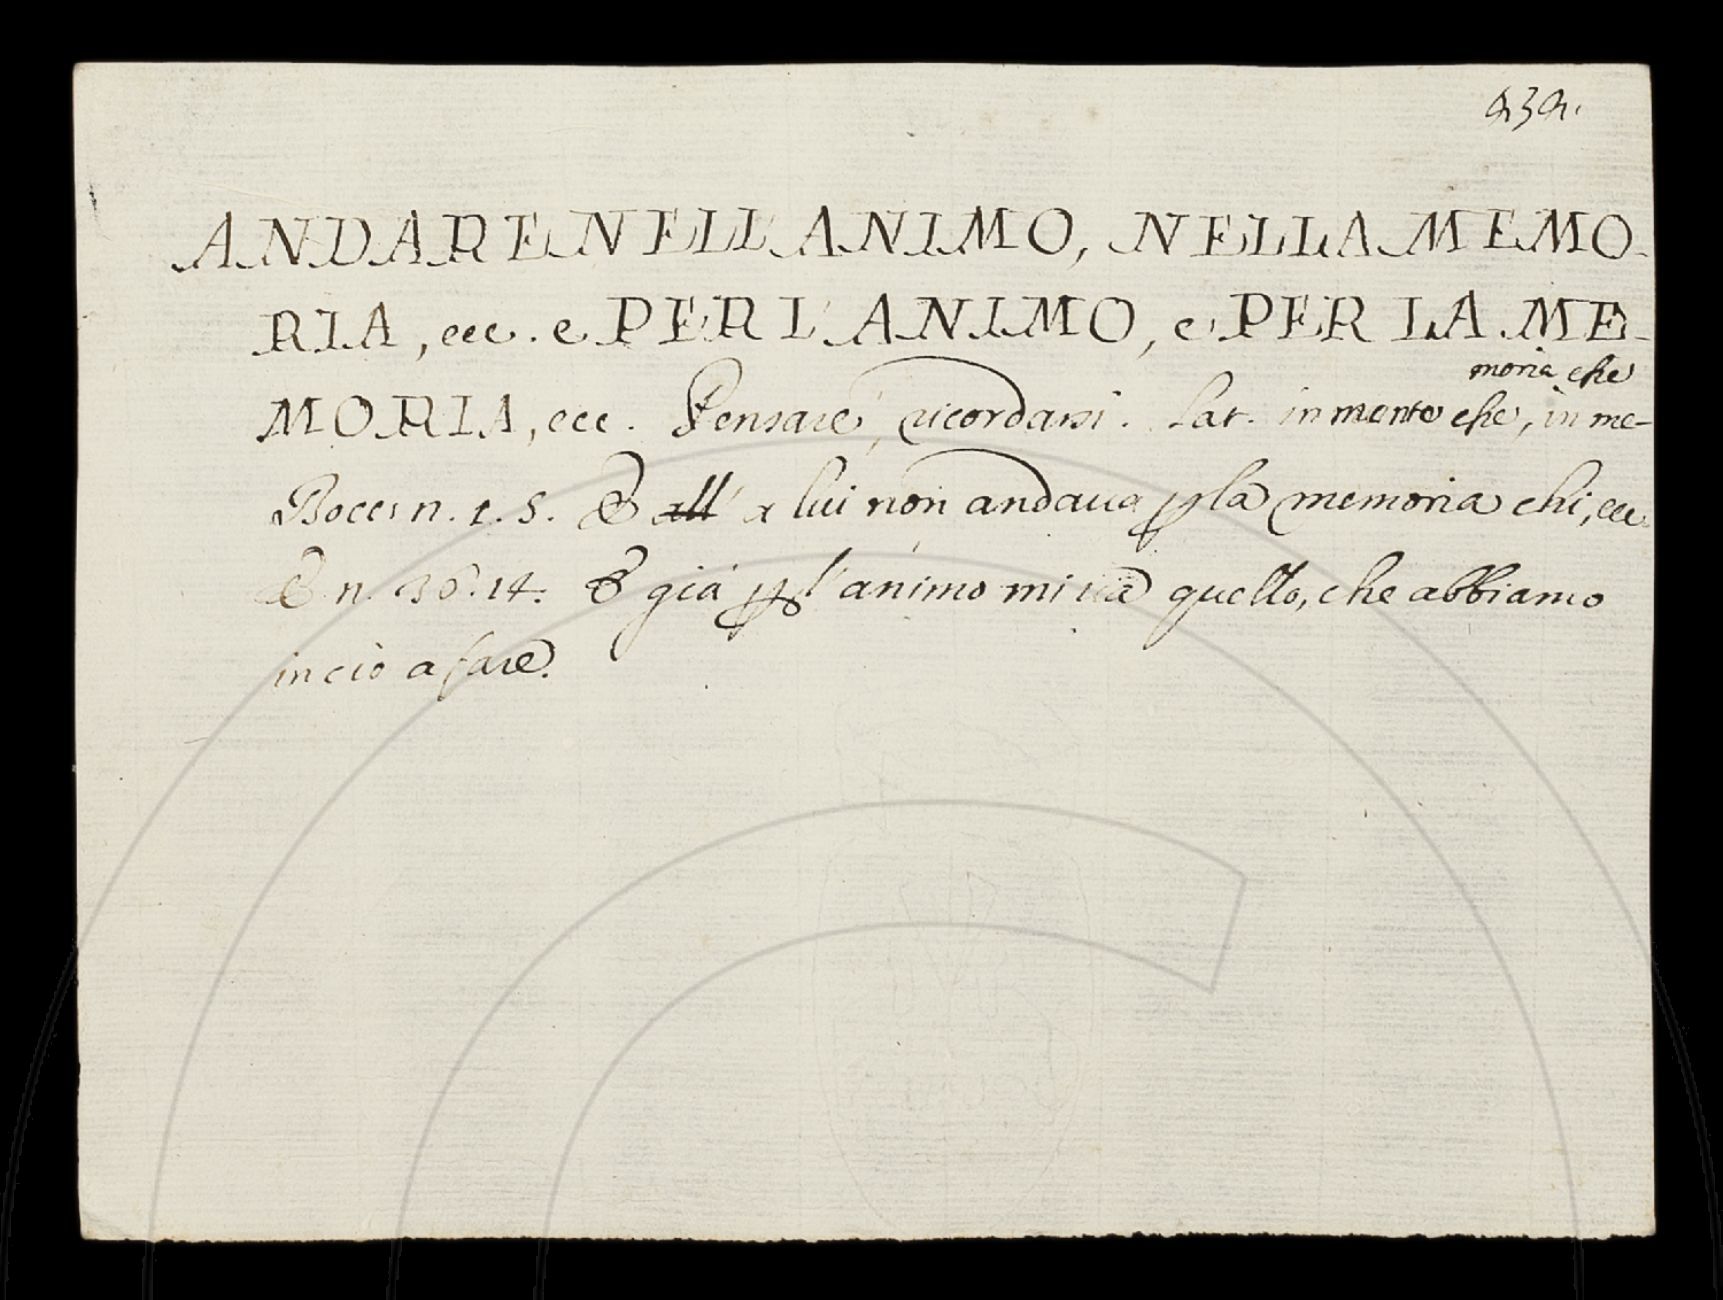 ANDARE NELL'ANIMO, NELLA MEMO-
RIA, ecc. e PER L'ANIMO, e PER LA ME-
moria che
MORIA, ecc. Pensare, ricordarsi. Lat. in mente che, in me-
Bocc. n. 1. 5. E all' a lui non andava p la memoria chi, ecc.
E n. 36. 14. E già p l'animo mi va quello, che abbiamo
in ciò a fare.